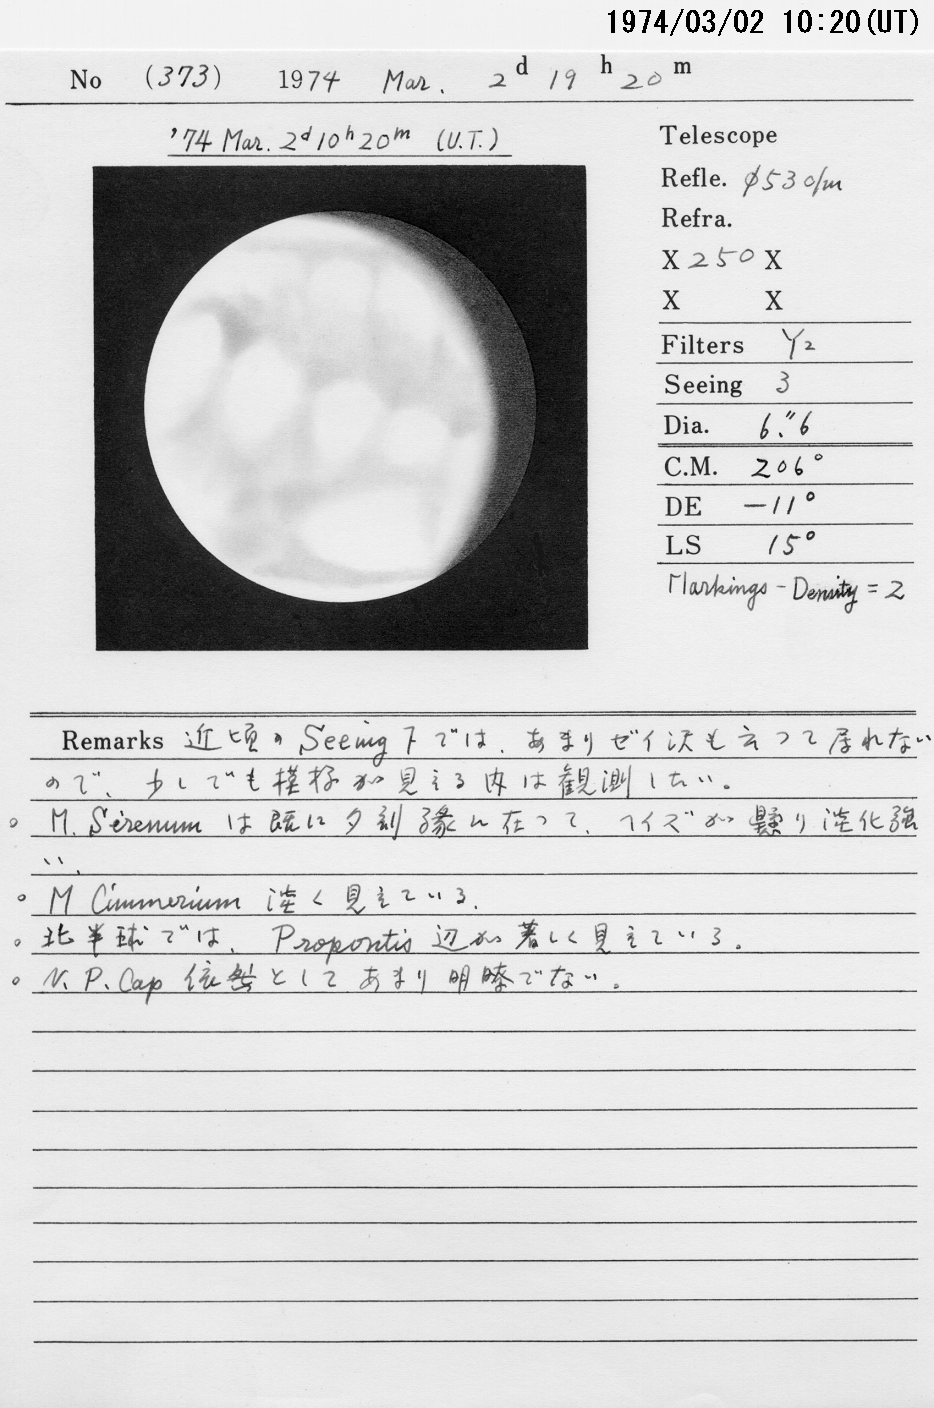 1974/03/02 10:20(UT)
No (373) 1974 Mar. 2d 19h 20m
'74 Mar. 2d 10h 20m (U.T.)
Telescope
Refle. φ53c/m
Refra.
X 250 X
X X
Filters Y2
Seeing 3
Dia. 6."6
C.M. 206°
DE -11°
LS 15°
Markings - Density = 2
Remarks 近頃の Seeing 下では、あまりゼイ沢も云って居れない
ので、少しでも模様が見える内は観測したい。
○ M. Sirenum は既に夕刻縁に在って、ヘイズが懸り淡化強
い.
○ M Cimmerium 淡く見えている.
○ 北半球では、Propontis 辺が著しく見えている.
○ N. P. Cap 依然としてあまり明瞭でない。